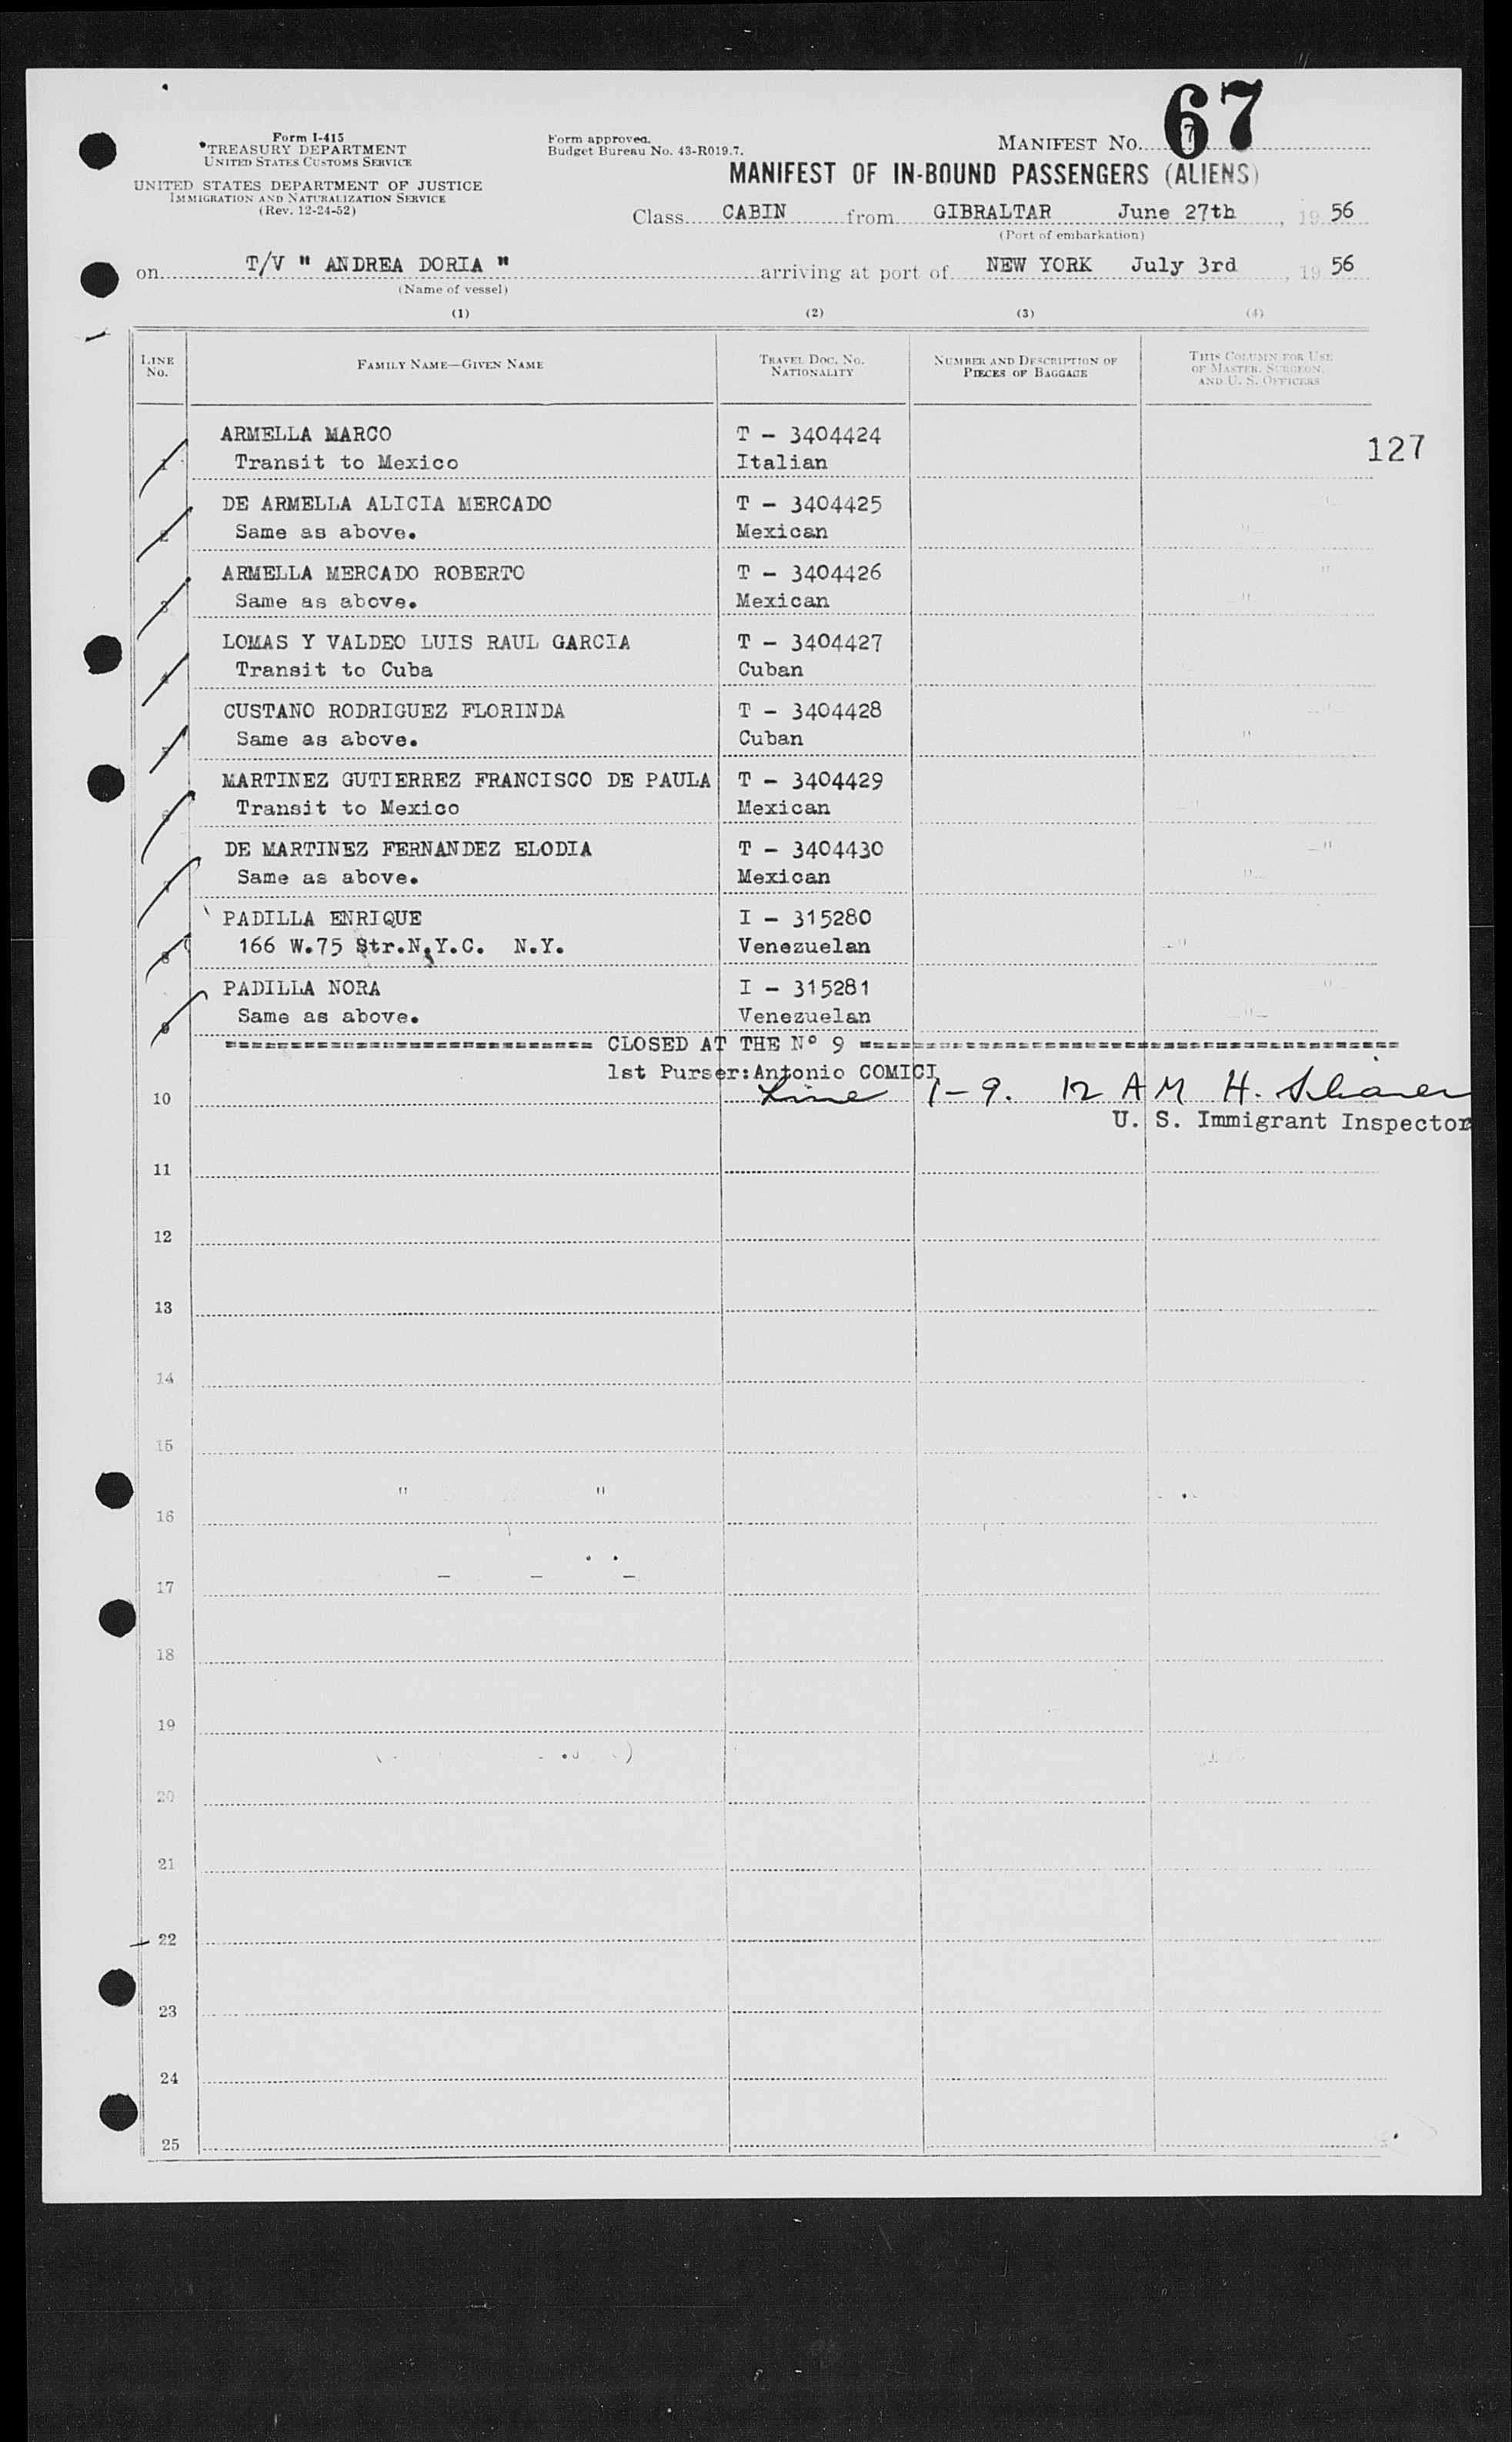 67
Form I-415
TREASURY DEPARTMENT
UNITED STATES CUSTOMS SERVICE
UNITED STATES DEPARTMENT OF JUSTICE
IMMIGRATION AND NATURALIZATION SERVICE
(Rev. 12-24-52)
Form approved.
Budget Bureau No. 43-R019.7.
MANIFEST No. 7
MANIFEST OF IN-BOUND PASSENGERS (ALIENS)
Class CABIN from GIBRALTAR June 27th, 19 56
(Port of embarkation)
on T/V " ANDREA DORIA " arriving at port of NEW YORK July 3rd, 19 56
(Name of vessel)
(1) (2) (3) (4)
LINE No. FAMILY NAME—GIVEN NAME TRAVEL DOC. NO. NATIONALITY NUMBER AND DESCRIPTION OF PIECES OF BAGGAGE THIS COLUMN FOR USE OF MASTER, SURGEON, AND U. S. OFFICERS
ARMELLA MARCO T - 3404424
127
1 Transit to Mexico Italian
DE ARMELLA ALICIA MERCADO T - 3404425
2 Same as above. Mexican
ARMELLA MERCADO ROBERTO T - 3404426
3 Same as above. Mexican
LOMAS Y VALDEO LUIS RAUL GARCIA T - 3404427
4 Transit to Cuba Cuban
CUSTANO RODRIGUEZ FLORINDA T - 3404428
5 Same as above. Cuban
MARTINEZ GUTIERREZ FRANCISCO DE PAULA T - 3404429
6 Transit to Mexico Mexican
DE MARTINEZ FERNANDEZ ELODIA T - 3404430
7 Same as above. Mexican
PADILLA ENRIQUE I - 315280
8 166 W.75 Str.N.Y.C. N.Y. Venezuelan
PADILLA NORA I - 315281
9 Same as above. Venezuelan
CLOSED AT THE Nº 9
1st Purser:Antonio COMICI
10 Line 1-9. 12 AM H.
U. S. Immigrant Inspector
11
12
13
14
15
16
17
18
19
20
21
22
23
24
25